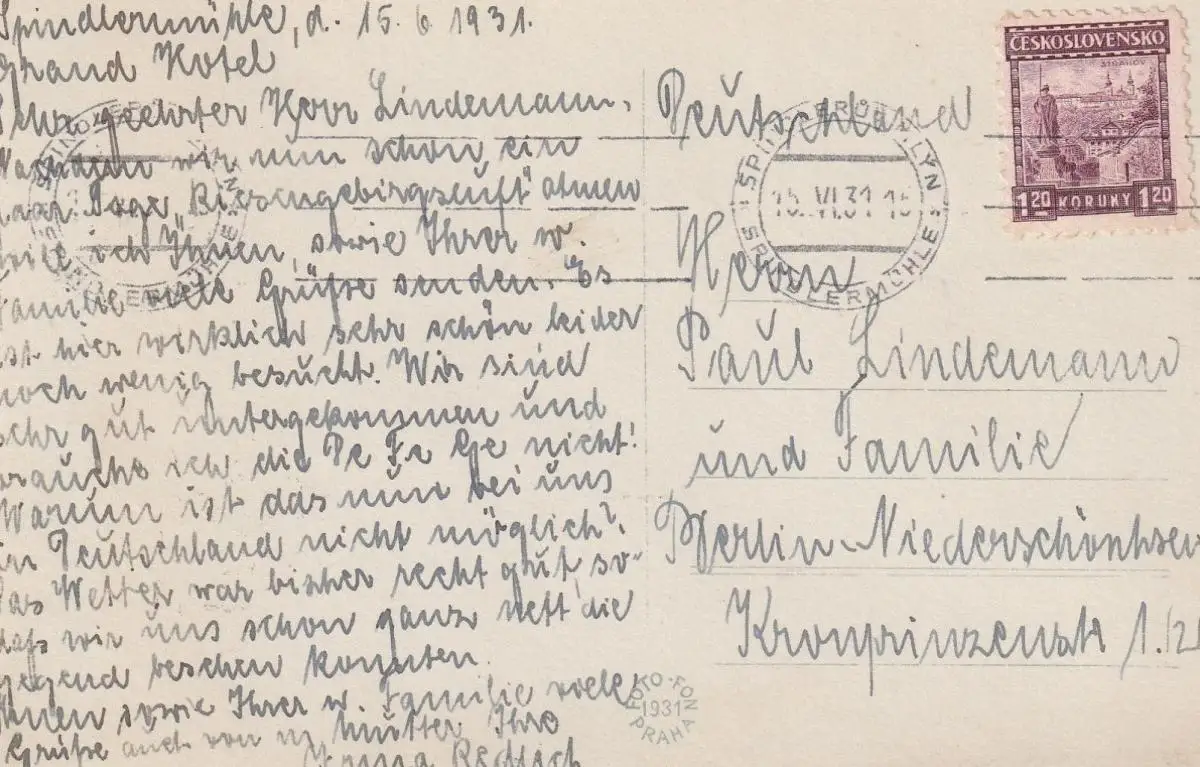 Spindlermühle, d. 15. 6. 1931.
Grand Hotel
Sehr geehrter Herr Lindemann.
Nachdem wir nun schon ein
paar Tage „Riesengebirgsluft“ atmen
will ich Ihnen, sowie Ihrer w.
Familie viele Grüße senden. Es
ist hier wirklich sehr schön leider
noch wenig besucht. Wir sind
sehr gut untergekommen und
brauche ich die Pe Fe Ge nicht!
Warum ist das nun bei uns
in Deutschland nicht möglich?
Das Wetter war bisher recht gut, so-
daß wir uns schon ganz nett die
Gegend besehen konnten.
Ihnen sowie Ihrer w. Familie viele
Grüße auch von m Mutter Ihre
Redlich
ČESKOSLOVENSKO
STRAHOV
1.20 KORUNY 1.20
Deutschland
15. VI. 31
Herrn
Paul Lindemann
und Familie
Berlin-Niederschönhsen
Kronprinzenstr 1.
FOTO-FON
1931
PRAHA